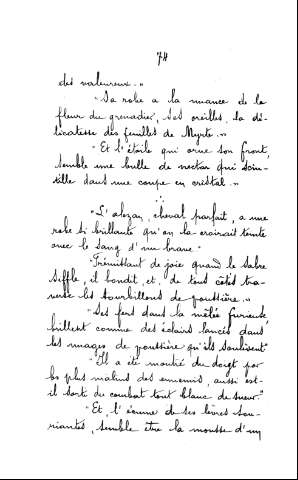 74
des valeureux.»
"Sa robe a la nuance de la
fleur du grenadier, ses oreilles, la dé-
licatesse des feuilles de Myrte.»
"Et l'étoile qui orne son front,
semble une bulle de nectar qui scin-
tille dans une coupe en cristal.»
"L'alezan, cheval parfait, a une
robe si brillante qu'on la croirait teinte
avec le sang d'un brave."
"Frémissant de joie quand le sabre
siffle, il bondit, et, de tous côtés tra-
verse les tourbillons de poussière.»
"Ses fers dans la mêlée furieuse,
brillent comme des éclairs lancés dans
les nuages de poussière qu'ils soulèvent"
"Il a été montré du doigt par
les plus malins des ennemis, aussi est-
il sorti du combat tout blanc de sueur."
"Et, l'écume de ses lèvres sou-
riantes, semble être la mousse d'un